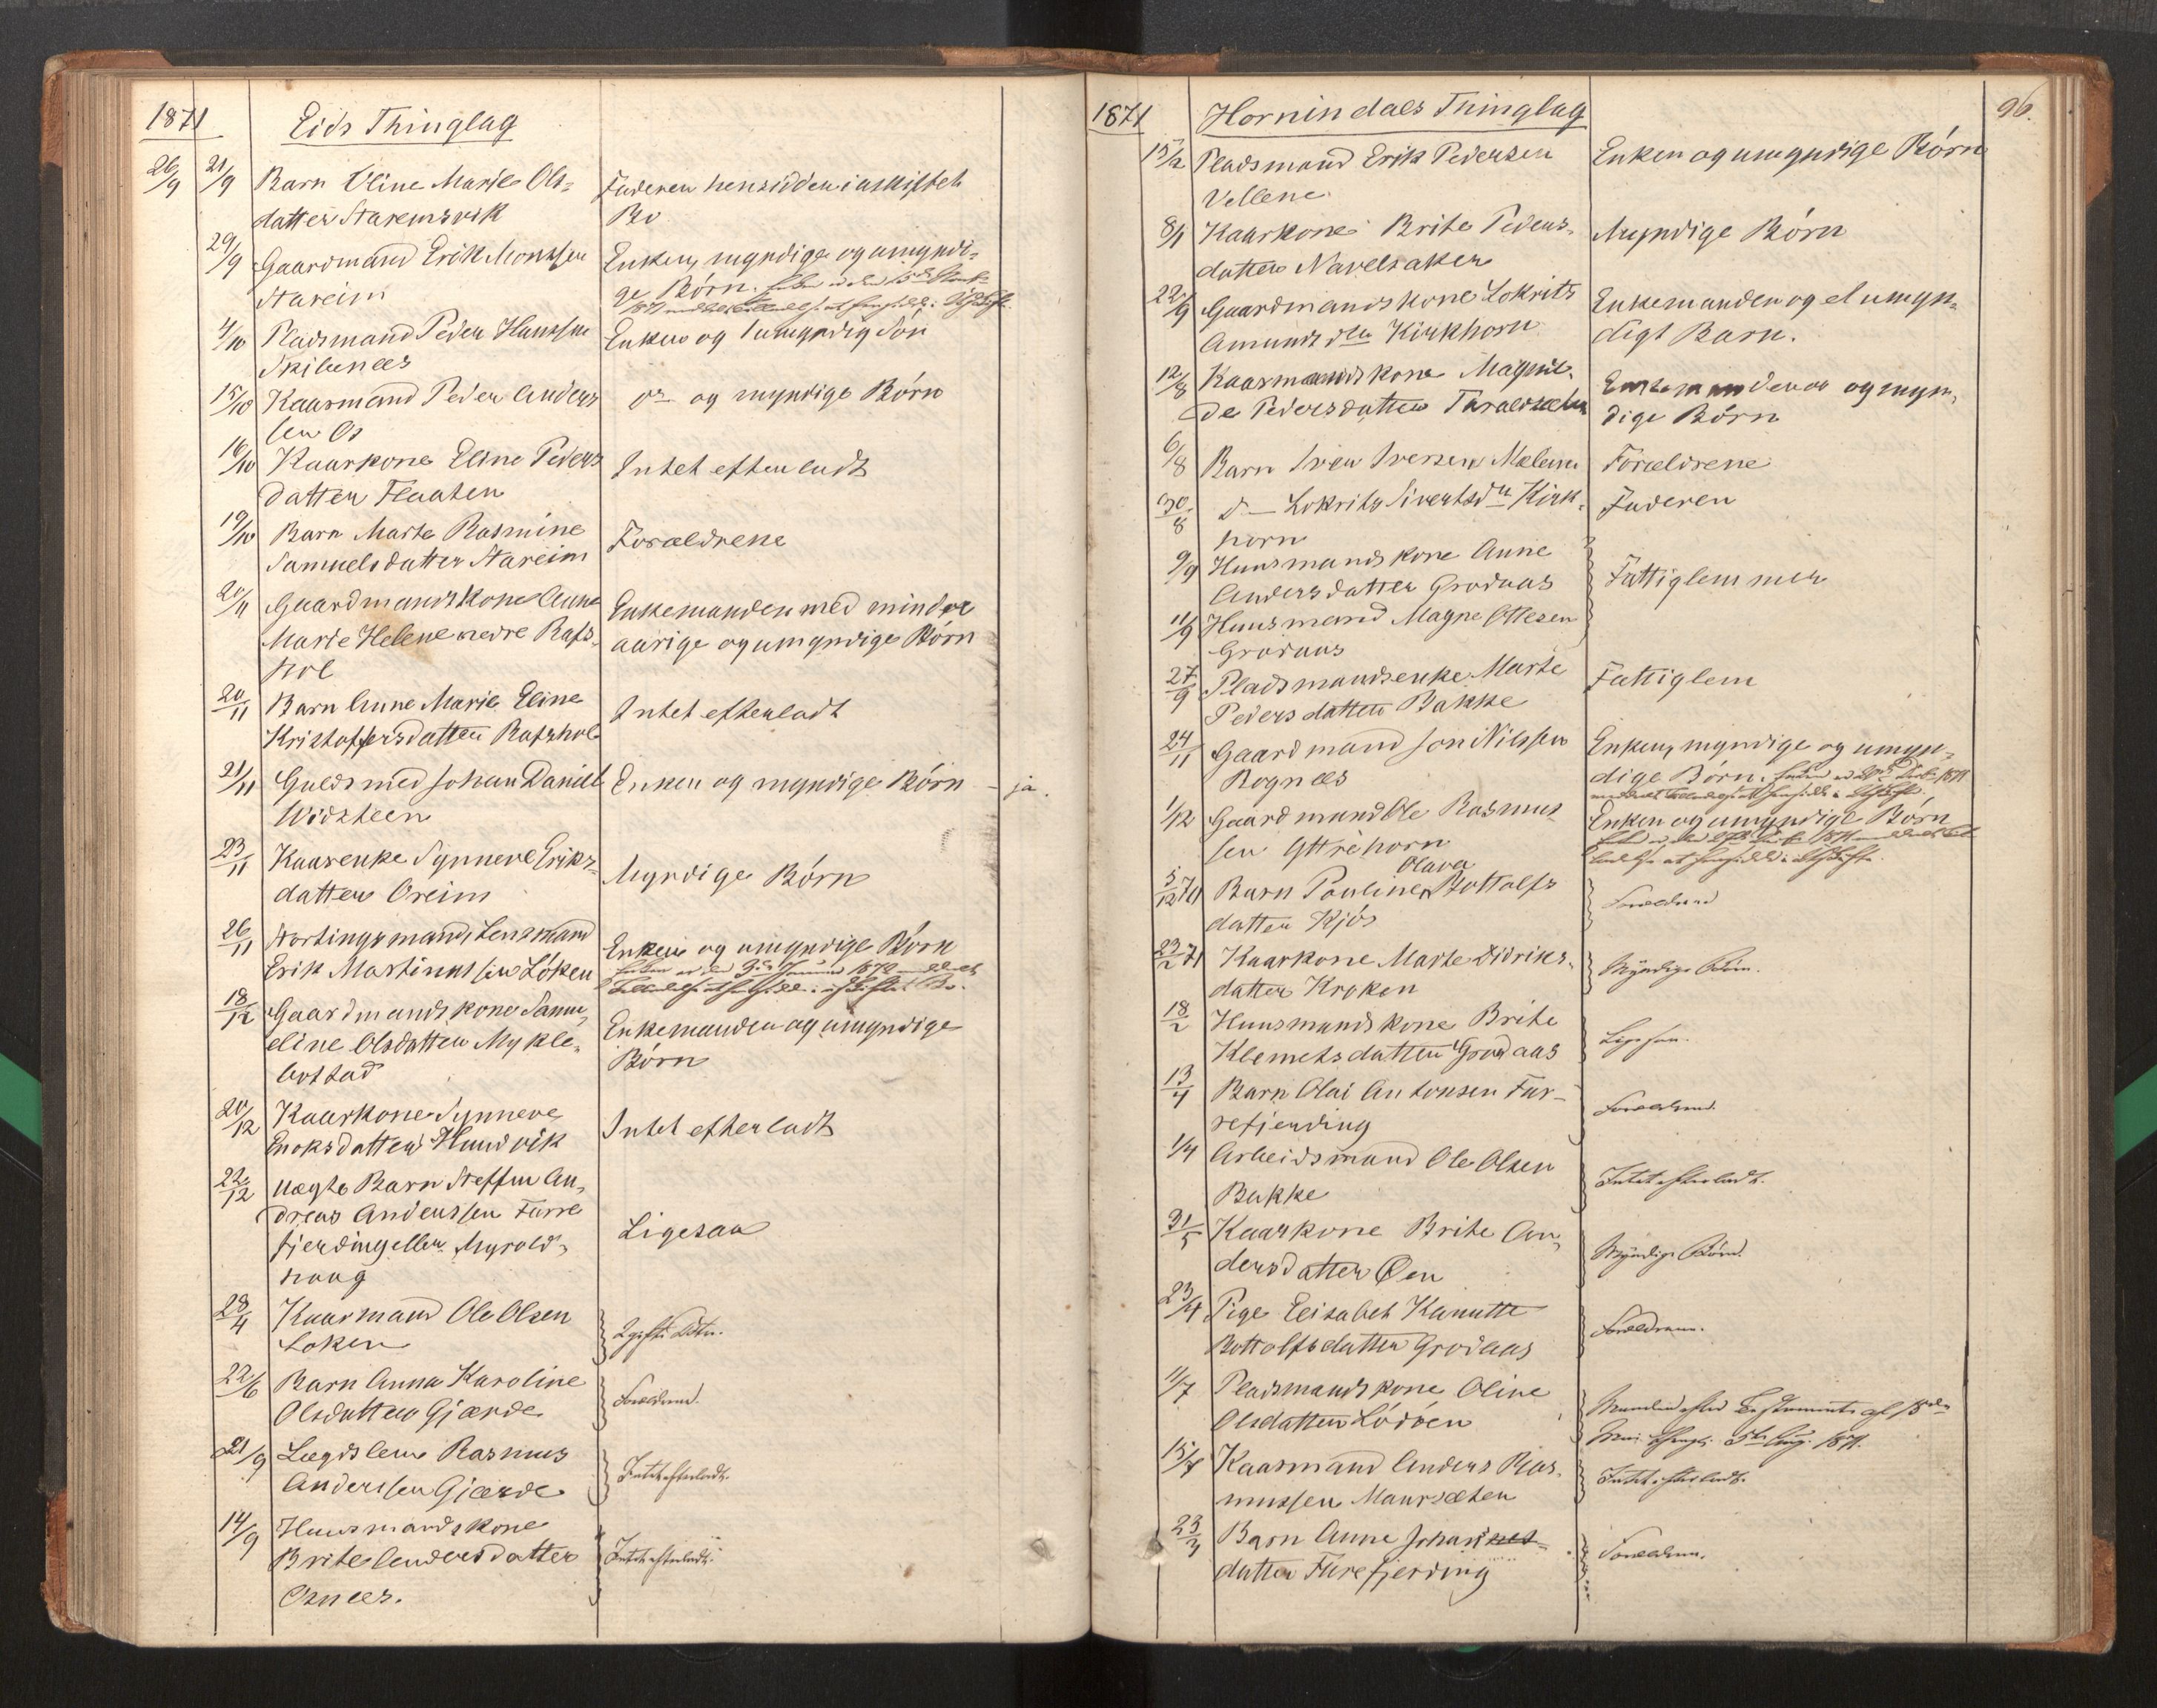 1871
Eids Thinglag
26/9 21/9 Barn Oline Marie Ols-
datter Stareimsvik
Faderen hensidden i uskiftet
Bo
29/9 Gaardmand Erik Monssen
Stareim
Enken, myndige og umyndi-
ge Børn.
4/10 Pladsmand Peder Hanssen
Skibenæs
Enken og 1 umyndig Søn
15/10 Kaarmand Peder Anders
sen Os
do og myndige Børn
16/10 Kaarkone Eline Peders
datter Flaaten
Intet efterladt
19/10 Barn Marte Rasmine
Samuelsdatter Stareim
Forældrene
20/11 Gaardmands Kone Anne
Marie Helene nedre Rafs-
hol
Enkemanden med minder
aarige og umyndige Børn
20/11 Barn Anne Marie Eline
Kristoffersdatter Rafshol
Intet efterladt
21/11 Guldsmed Johan Daniel
Widsteen
Enken og myndige Børn - ja.
23/11 Kaarenke Synneve Eriks-
datter Oreim
Myndige Børn
26/11 Stortingsmand, Lensmand
Erik Martinussen Løken
Enken og umyndige Børn
18/12 Gaardmandskone Samu-
eline Olsdatter Mykle-
bostad
Enkemanden og umyndige
Børn
20/12 Kaarkone Synneve
Enoksdatter Hundvik
Intet efterladt
22/12 uægte Barn Steffen An-
dreas Anderssen Furre
fjerding eller Myrold-
haug
Ligesaa
28/4 Kaarmand Ole Olsen
Løken
2 gifte Døtre.
22/6 Barn Anna Karoline
Olsdatter Gjærde
Forældrene.
21/9 Lægdslem Rasmus
Anderssen Gjærde
Intet efterladt.
14/9 Huusmandskone
Brite Andersdatter
Osnæs.
Intet efterladt.
1871
Hornindals Thinglag
96.
15/2 Pladsmand Erik Pedersen
Vellene
Enken og umyndige Børn
8/1 Kaarkone Brite Peders-
datter Navelsaker
Myndige Børn
22/9 Gaardmandskone Lokrits
Amundsdtr Kirkhorn
Enkemanden og et umyn-
digt Barn.
12/8 Kaarmandskone Magnil-
de Pedersdatter Taraldsæter
Enkemanden og myn-
dige Børn
6/8 Barn Iver Iversen Mælem
Forældrene
30/8 do Lokrits Sivertsdtr Kirk-
horn
Faderen
9/9 Huusmandskone Anne
Andersdatter Grodaas
Fattiglemmer
11/9 Huusmand Magne Ottesen
Grodaas
27/9 Pladsmandsenke Marte
Pedersdatter Bakke
Fattiglem
24/11 Gaardmand Jon Nilssen
Rognæs
Enken, myndige og umyn-
dige Børn.
1/12 Gaardmand Ole Rasmus
sen Yttrehorn
Enken og umyndige Børn
5/12 70 Barn Pauline Olava Bottolfs
datter Kjøs
Forældrene
23/2 71 Kaarkone Marte Didriks-
datter Kroken
Myndige Børn.
18/2 Huusmandskone Brite
Klemetsdatter Grodaas
Ligesaa.
13/4 Barn Olai Antonsen Fur-
refjerding
Forældrene.
1/4 Arbeidsmand Ole Olsen
Bakke
Intet efterladt.
31/5 Kaarkone Brite An-
dersdatter Øen
Myndige Børn.
23/4 Pige Elisabet Kanutte
Bottolfsdatter Grodaas
Forældrene.
11/7 Pladsmands kone Oline
Olsdatter Lødøen
Manden efter Testamente af 13de
Mai 5te Aug. 1871.
15/7 Kaarmand Anders Ras-
mussen Maursæten
Intet efterladt.
23/9 Barn Anne Johannes-
datter Furefjerding
Forældrene.